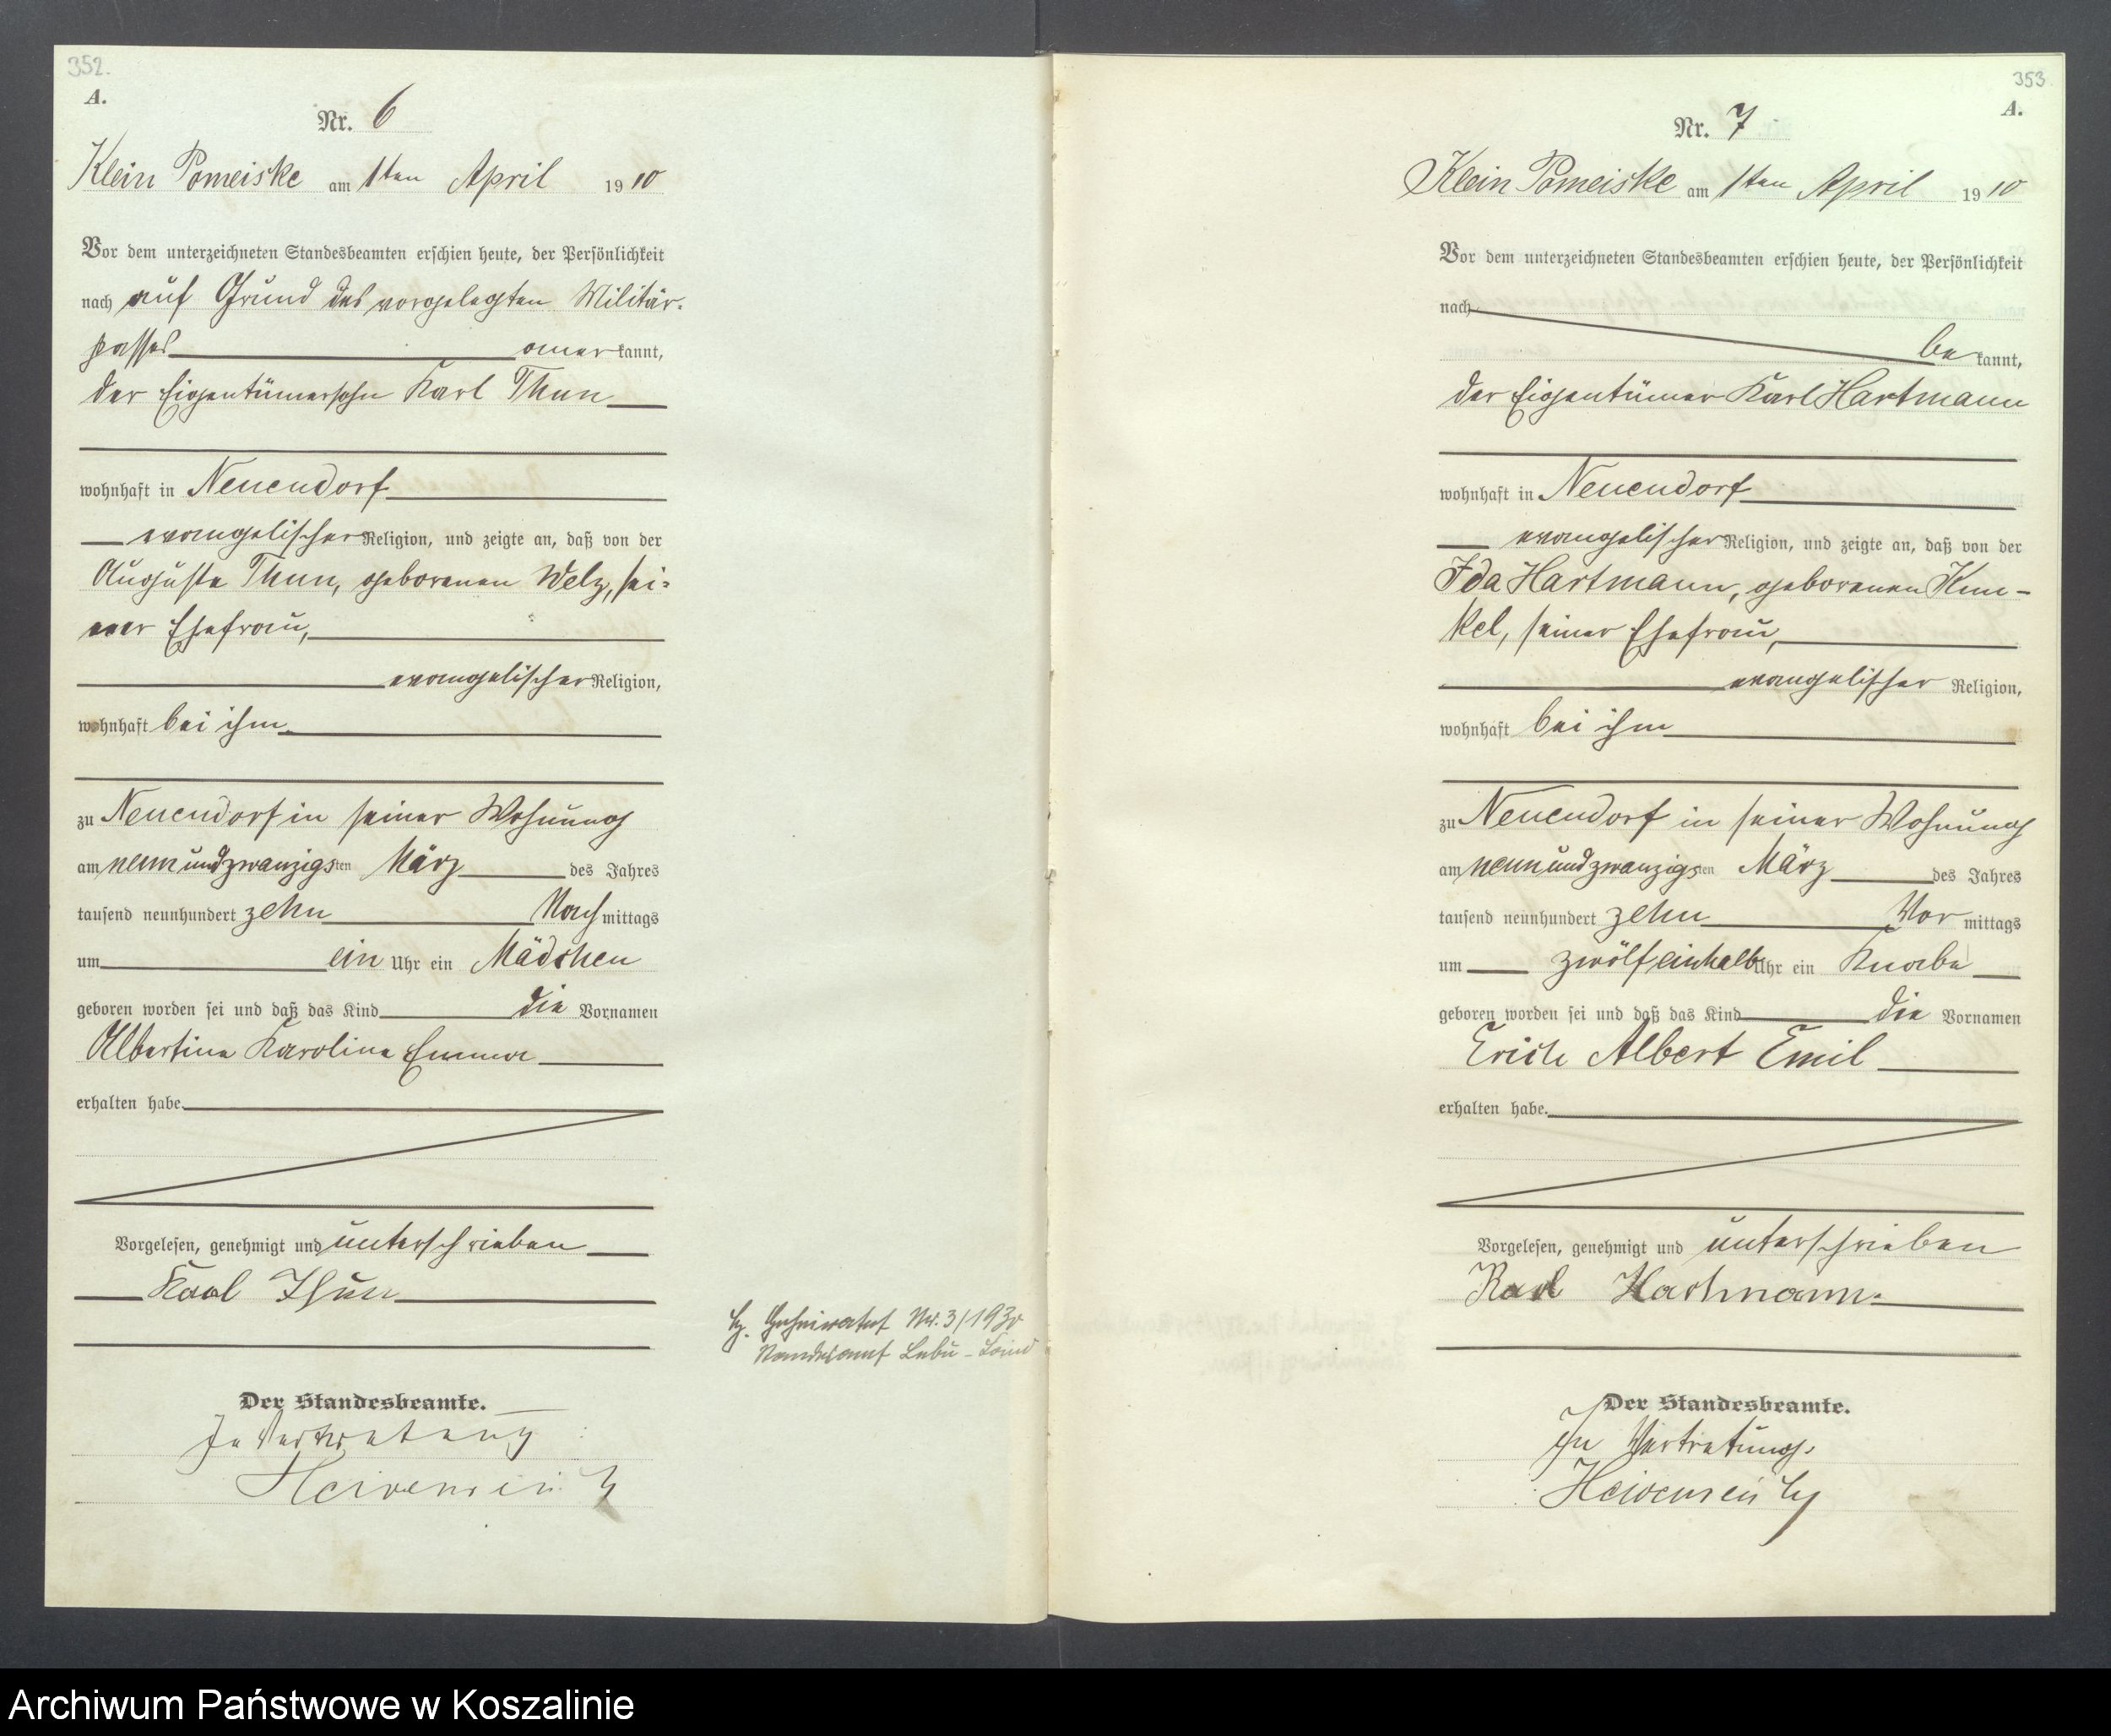 352.
A.
Nr. 6
Klein Pomeiske am 1ten April 1910
Vor dem unterzeichneten Standesbeamten erschien heute, der Persönlichkeit
nach auf Grund des vorgelegten Militär-
passes anerkannt,
der Eigentümersohn Karl Thun
wohnhaft in Neuendorf
evangelischer Religion, und zeigte an, daß von der
Auguste Thun, geborenen Welz, sei-
ner Ehefrau,
evangelischer Religion,
wohnhaft bei ihm
zu Neuendorf in seiner Wohnung
am neunundzwanzigsten März des Jahres
tausend neunhundert zehn Nachmittags
um ein Uhr ein Mädchen
geboren worden sei und daß das Kind die Vornamen
Albertine Karoline Emma
erhalten habe.
Vorgelesen, genehmigt und unterschrieben
Karl Thun
Nr. 3/1930
Standesamt
Der Standesbeamte.
In Vertretung
353
A.
Nr. 7
Klein Pomeiske am 1ten April 1910
Vor dem unterzeichneten Standesbeamten erschien heute, der Persönlichkeit
nach
bekannt,
der Eigentümer Karl Hartmann
wohnhaft in Neuendorf
evangelischer Religion, und zeigte an, daß von der
Ida Hartmann, geborenen Kun-
kel, seiner Ehefrau,
evangelischer Religion,
wohnhaft bei ihm
zu Neuendorf in seiner Wohnung
am neunundzwanzigsten März des Jahres
tausend neunhundert zehn Vormittags
um zwölfeinhalb Uhr ein Knabe
geboren worden sei und daß das Kind die Vornamen
Erich Albert Emil
erhalten habe.
Vorgelesen, genehmigt und unterschrieben
Karl Hartmann.
Der Standesbeamte.
In Vertretung.
Archiwum Państwowe w Koszalinie